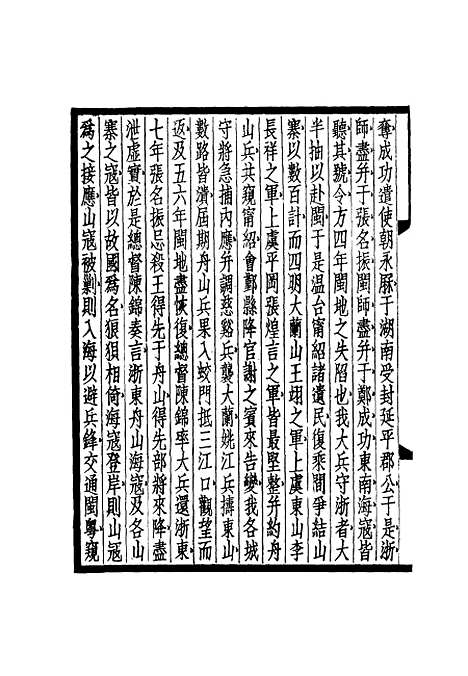 奪成功遣使朝永厤于湖南受封延平郡公于是浙
師盡并于張名振閩師盡并于鄭成功東南海寇皆
聽其號令方四年閩地之失陷也我大兵守浙者大
半抽以赴閩于是温台甯紹諸遺民復乘閒爭結山
寨以數百計而四明大蘭山王翊之軍上虞東山李
長祥之軍上虞平岡張煌言之軍皆最堅整并約舟
山兵共窺甯紹會鄞縣降官謝之賓來告變我各城
守將急捕内應并調慈谿兵襲大蘭姚江兵擣東山
數路皆潰屆期舟山兵果入蛟門抵三江口觀望而
返及五六年閩地盡恢復總督陳錦率大兵還浙東
七年張名振忌殺王得先于舟山得先部將來降盡
泄虛實於是總督陳錦奏言浙東舟山海寇及各山
寨之寇皆以故國爲名狼狽相倚海寇登岸則山寇
爲之接應山寇被剿則入海以避兵鋒交通閩粤窺